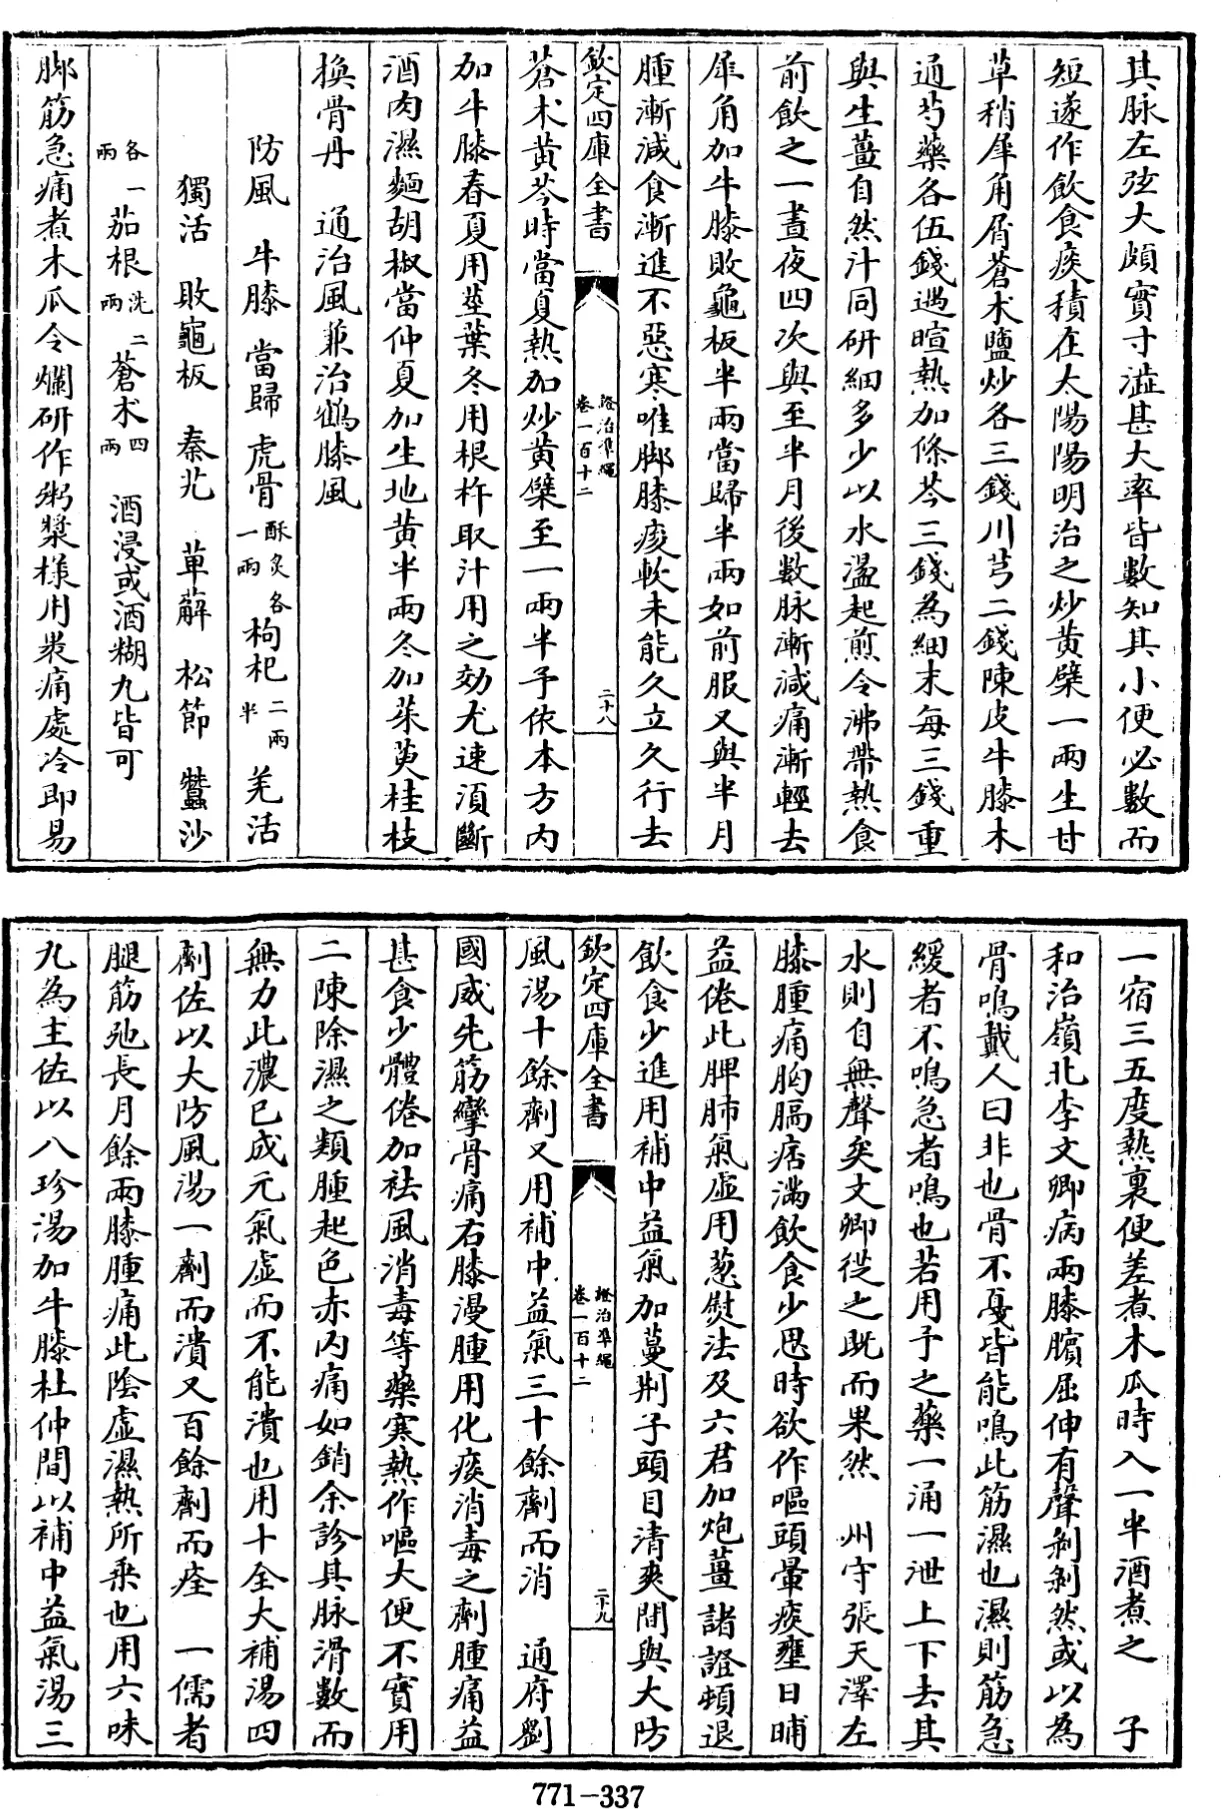 其脉左弦大頗實寸澁甚大率皆數知其小便必數而
短遂作飲食痰積在太陽陽明治之炒黄蘖一兩生甘
草稍犀角屑蒼术鹽炒各三錢川芎二錢陳皮牛膝木
通芍藥各伍錢遇暄熱加條芩三錢為細末每三錢重
與生薑自然汁同研細多少以水溫起煎令沸帶熱食
前飲之一晝夜四次與至半月後數脉漸減痛漸輕去
犀角加牛膝敗龜板半兩當歸半兩如前服又與半月
腫漸減食漸進不惡寒唯脚膝痠軟未能久立久行去
欽定四庫全書
證治準繩
卷一百十二
二十八
蒼术黄芩時當夏熱加炒黄蘖至一兩半予依本方内
加牛膝春夏用莖葉冬用根杵取汁用之効尤速須斷
酒肉濕麵胡椒當仲夏加生地黄半兩冬加茱萸桂枝
換骨丹 通治風兼治鶴膝風
防風 牛膝 當歸 虎骨酥炙各一兩 枸杞二兩半 羌活
獨活 敗龜板 秦艽 萆薢 松節 蠶沙
各一兩 茄根洗二兩 蒼术四兩 酒浸或酒糊丸皆可
脚筋急痛煮木瓜令爛研作粥漿様用裹痛處冷即易
一宿三五度熱裹便差煮木瓜時入一半酒煮之 子
和治嶺北李文卿病兩膝臏屈伸有聲剝剝然或以為
骨鳴戴人曰非也骨不戞皆能鳴此筋濕也濕則筋急
緩者不鳴急者鳴也若用予之藥一涌一泄上下去其
水則自無聲矣文卿從之既而果然 州守張天澤左
膝腫痛胸膈痞滿飲食少思時欲作嘔頭暈痰壅日晡
益倦此脾肺氣虚用葱熨法及六君加炮薑諸證頓退
飲食少進用補中益氣加蔓荆子頭目清爽間與大防
欽定四庫全書
證治準繩
卷一百十二
二十九
風湯十餘劑又用補中益氣三十餘劑而消 通府劉
國威先筋攣骨痛右膝漫腫用化痰消毒之劑腫痛益
甚食少體倦加祛風消毒等藥寒熱作嘔大便不實用
二陳除濕之類腫起色赤内痛如銷余診其脉滑數而
無力此濃已成元氣虚而不能潰也用十全大補湯四
劑佐以大防風湯一劑而潰又百餘劑而痊 一儒者
腿筋弛長月餘兩膝腫痛此陰虚濕熱所乘也用六味
丸為主佐以八珍湯加牛膝杜仲間以補中益氣湯三
771-337